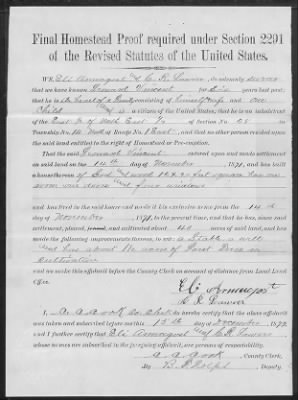 Final Homestead Proof required under Section 2291
of the Revised Statutes of the United States.
WE, Eli Armagost & C. R. Lawver, do solemnly swear
that we have known Leonard Vincent for Six years last past;
that he is the head of a family consisting of himself wife and one
Child and is a citizen of the United States; that he is an inhabitant of the
East ½ of North East ¼ of Section No.
Township No. of Range No. East, and that no other person resided upon
the said land entitled to the right of Homestead or Pre-emption.
That the said Leonard Vincent entered upon and made settlement
on said land on the 14th day of November, 187, and has built
a house thereon of Sod and wood feet square has one
room one door and four windows
and has lived in the said house and made it his exclusive home from the 14th
day of November, 187, to the present time, and that he has, since said
settlement, plowed, and cultivated about 40 acres of said land, and has
made the following improvements thereon, to-wit: a Stable a well
and has about acres of Forest Trees in
cultivation
and we make this affidavit before the County Clerk on account of distance from Local Land
Office.
Eli Armagost
C R Lawver
I, A. A. Cook Co. Clerk do hereby certify that the above affidavit
was taken and subscribed before me this 15th day of December, 187
and I further certify that Eli Armagost and C. R. Lawver
whose names are subscribed to the foregoing affidavit, are persons of respectability.
A. A. Cook, County Clerk.
By, Deputy.